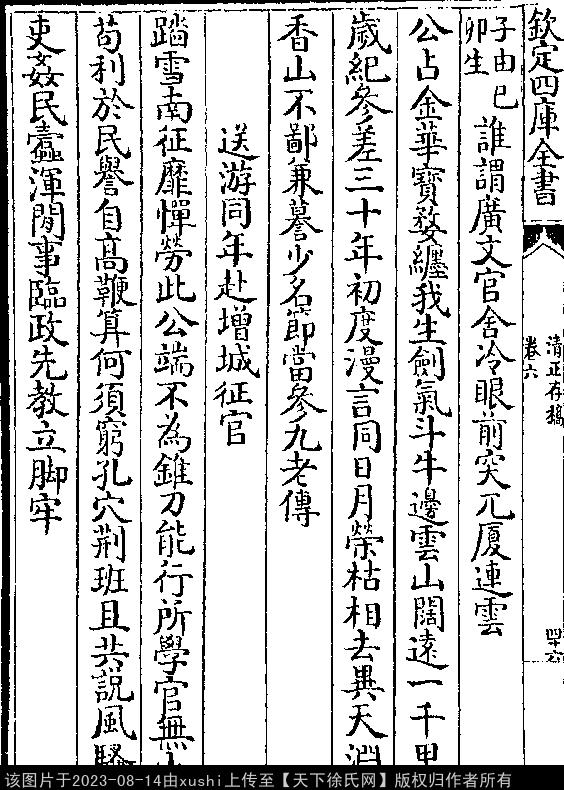 欽定四庫全書
清正存稿
卷六
子由巳
卯生
誰謂廣文官舍冷眼前突兀厦連雲
公占金華寶婺纏我生劍氣斗牛邊雲山闊遠一千里
歲紀參差三十年初度漫言同日月榮枯相去異天淵
香山不鄙兼謩少名節當參九老傳
送游同年赴增城征官
踏雪南征靡憚勞此公端不為錐刀能行所學官無
苟利於民譽自高鞭算何須窮孔穴荆班且共説風騷
吏姦民蠹渾閒事臨政先教立脚牢
该图片于2023-08-14由xushi上传至【天下徐氏网】版权归作者所有